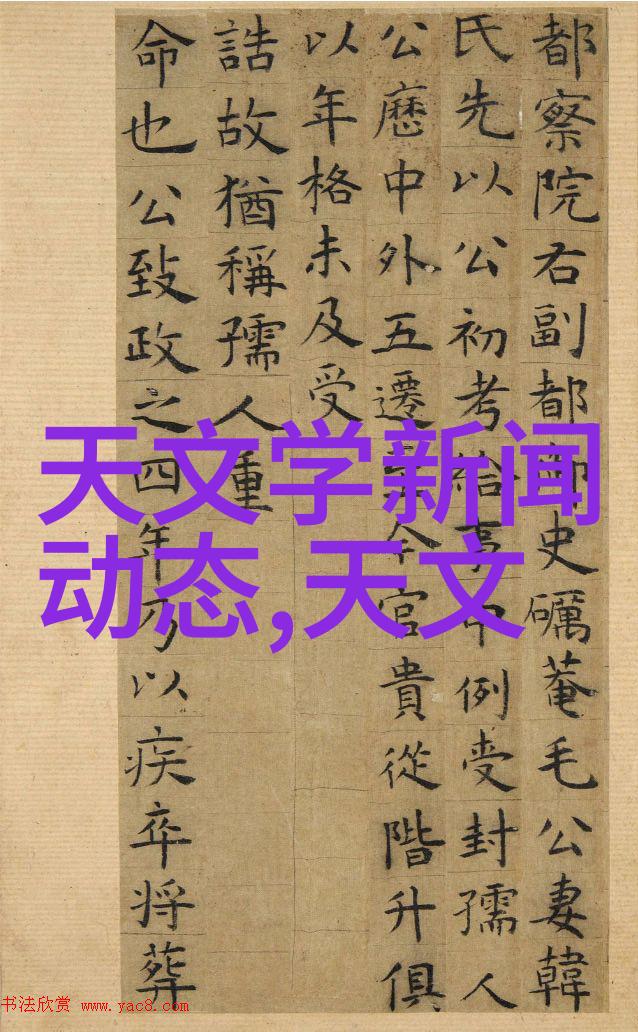 都察院右副都御史礪菴毛公妻韓
氏先以公初考給事中例受封孺人
公歷中外五遷今官貴從階升俱
以年格未及受
誥故猶稱孺人重
命也公致政之四年乃以疾卒将葬
天文学新闻
动态,天文
书法欣赏 www.yac8.com